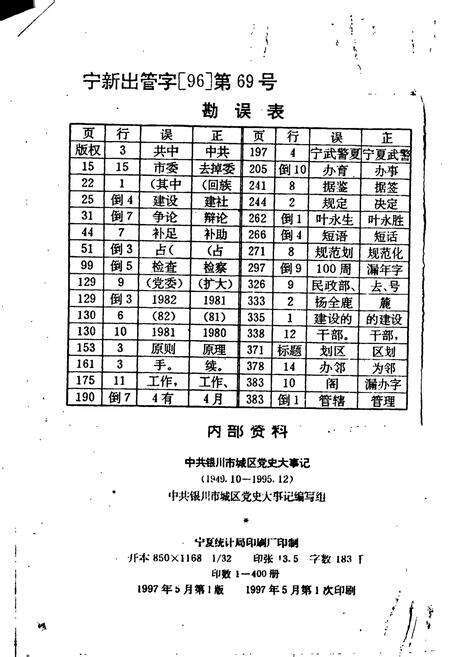 宁新出管字[96]第69号
勘误表
页 行 误 正 页 行 误 正
版权 3 共中 中共 197 4 宁武警夏 宁夏武警
15 15 市委 去掉委 205 倒10 办育 办事
22 1 (其中 (回族 241 8 据鉴 据签
25 倒4 建设 建社 244 2 规定 决定
31 倒7 争论 辩论 262 倒1 叶永生 叶永胜
44 7 补足 补助 266 倒4 短语 短话
51 倒3 占( (占 271 8 规范划 规范化
99 倒5 检查 检察 297 倒9 100周 漏年字
129 9 (党委) (扩大) 326 9 民政部、 去、号
129 倒3 1982 1981 333 2 杨全鹿 麓
130 6 (82) (81) 335 1 建设的 的建设
130 10 1981 1980 338 12 干部。 干部，
153 3 原则 原理 371 标题 划区 区划
161 3 手。 续。 378 14 办邻 为邻
175 11 工作， 工作、 383 10 阁 漏办字
190 倒7 4有 4月 383 倒1 管辖 管理
内部资料
中共银川市城区党史大事记
(1949.10—1995.12)
中共银川市城区党史大事记编写组
宁夏统计局印刷厂印制
开本850×1168 1/32 印张13.5 字数183千
印数1—400册
1997年5月第1版 1997年5月第1次印刷